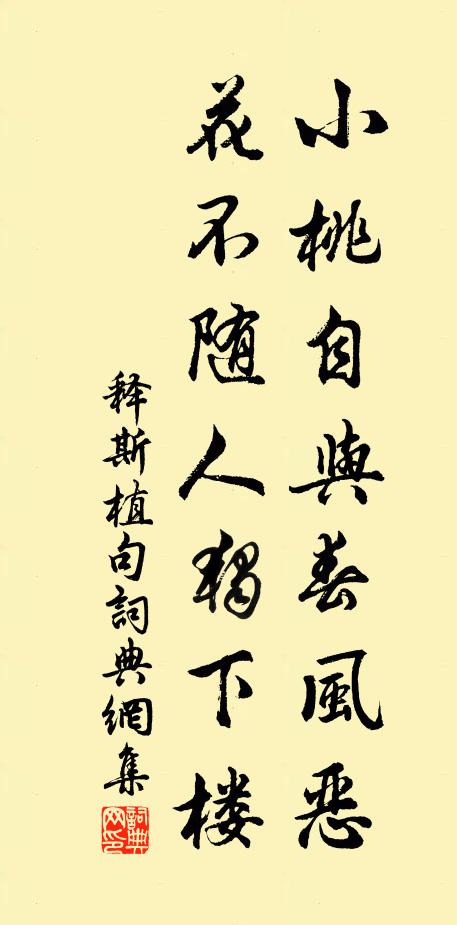 小桃自與春風惡
花不随人獨下楼
释斯植句詞典網集
詞典
网印